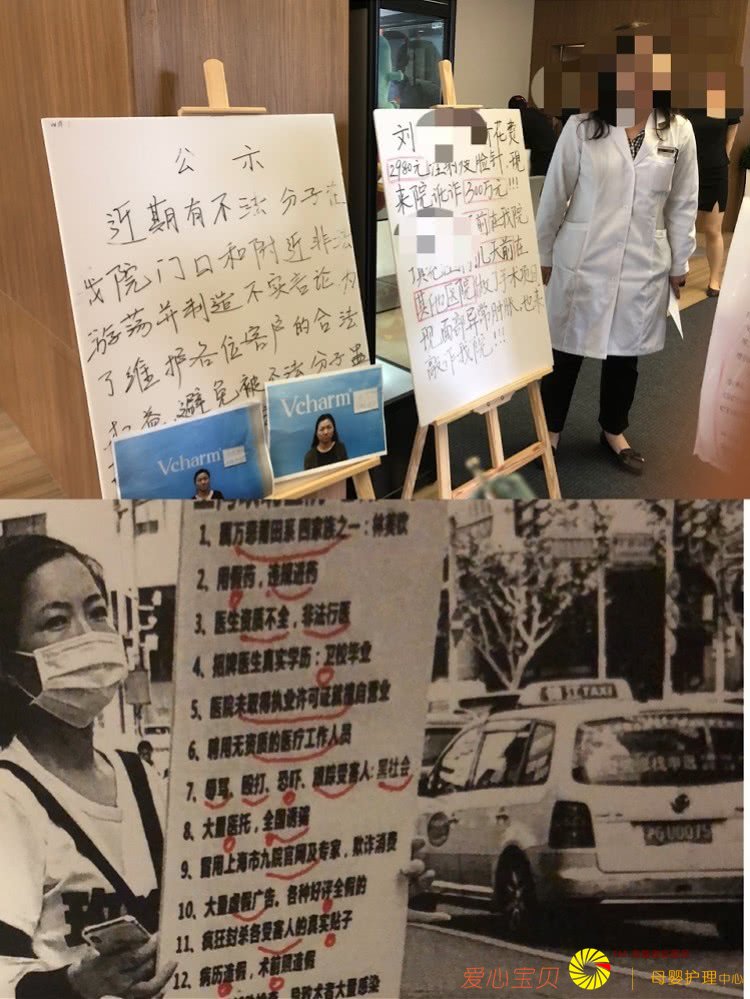 公 示
近期有不法分子在
我院门口和附近非法
游荡并制造不实言论为
了维护各位客户的合法
权益,避免被不法分子
Vcharm
Vcharm
刘 花费
12980元 脸针,现
来院讹诈300万元!!!
前在我院
几天前在
其他医院做了手术项目
现面部异常肿胀,也来
敲诈我院!!!
1、属万恶莆田系 四家族之一:林
2、用假药,违规进药
3、医生资质不全,非法行医
4、招牌医生真实学历:卫校毕业
5、医院未取得执业许可证就擅自营业
6、聘用无资质的医疗工作人员
7、辱骂、殴打、恐吓、跟踪受害人:黑社会
8、大量医托,全国诱骗
9、冒用上海市九院官网及专家,欺诈消费
10、大量虚假广告、各种好评全假的
11、疯狂封杀各受害人的真实贴子
12、病历造假,术前照造假
TAXI
爱心宝贝
母婴护理中心